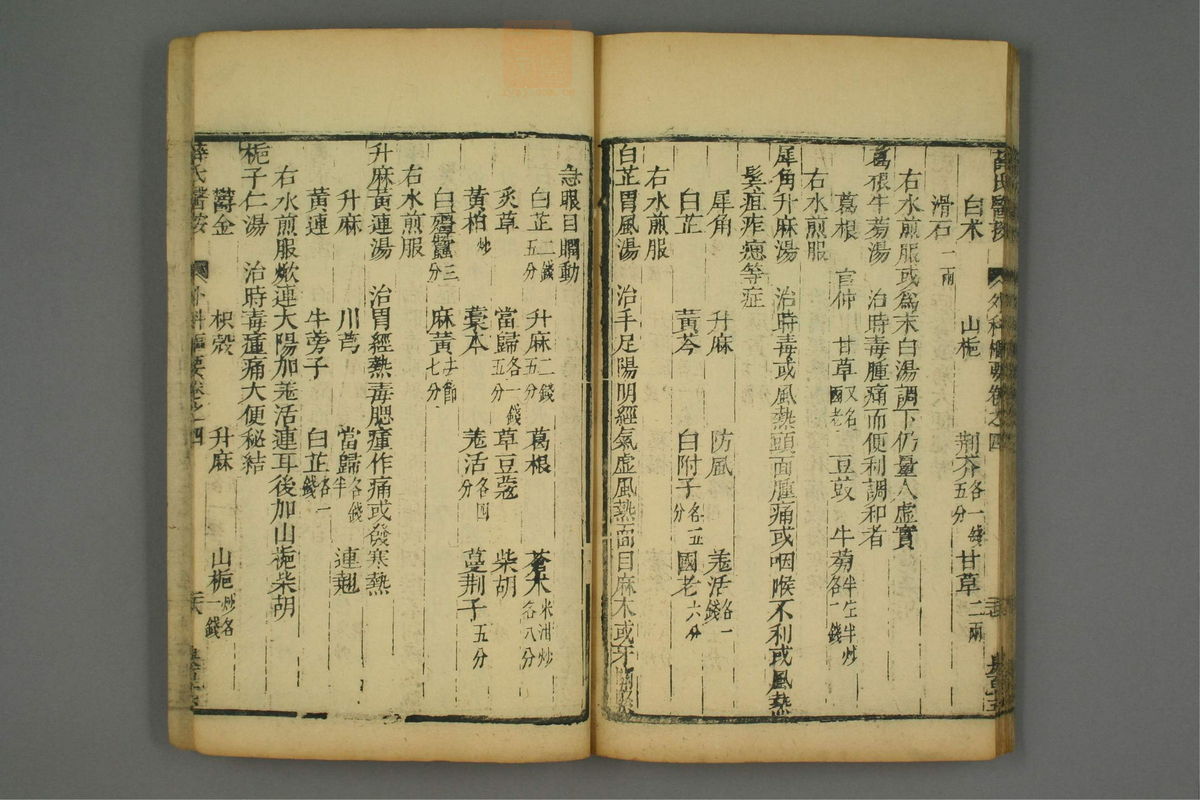 氏醫按 外科樞要卷之四
白朮 山梔 荆芥各一錢五分 甘草二兩
滑石一兩
右水煎服或爲末白湯調下仍量人虛實
葛根牛蒡湯 治時毒腫痛而便利調和者
葛根 官仲 甘草又名國老 豆豉 牛蒡半生半炒各一錢
右水煎服
犀角升麻湯 治時毒或風熱頭面腫痛或咽喉不利或風熱
鬓疽痄腮等症
犀角 升麻 防風 羗活各一錢
白芷 黃芩 白附子各五分 國老六分
右水煎服
白芷胃風湯 治手足陽明經氣虛風熱面目麻木或牙
急眼目瞤動
白芷二錢五分 升麻二錢五分 葛根 蒼朮米泔炒各八分
炙草 當歸各一錢五分 草豆蔻 柴胡
黃柏炒 藁本 羗活各四分 蔓荆子五分
白殭蠶三分 麻黃去節七分
右水煎服
升麻黃連湯 治胃經熱毒腮腫作痛或發寒熱
升麻 川芎 當歸各錢半 連翹
黃連 牛蒡子 白芷各一錢
右水煎服歟連大陽加羗活連耳後加山梔柴胡
梔子仁湯 治時毒腫痛大便秘結
鬱金 枳殼 升麻 山梔炒各一錢
薛氏醫按 外科樞要卷之四